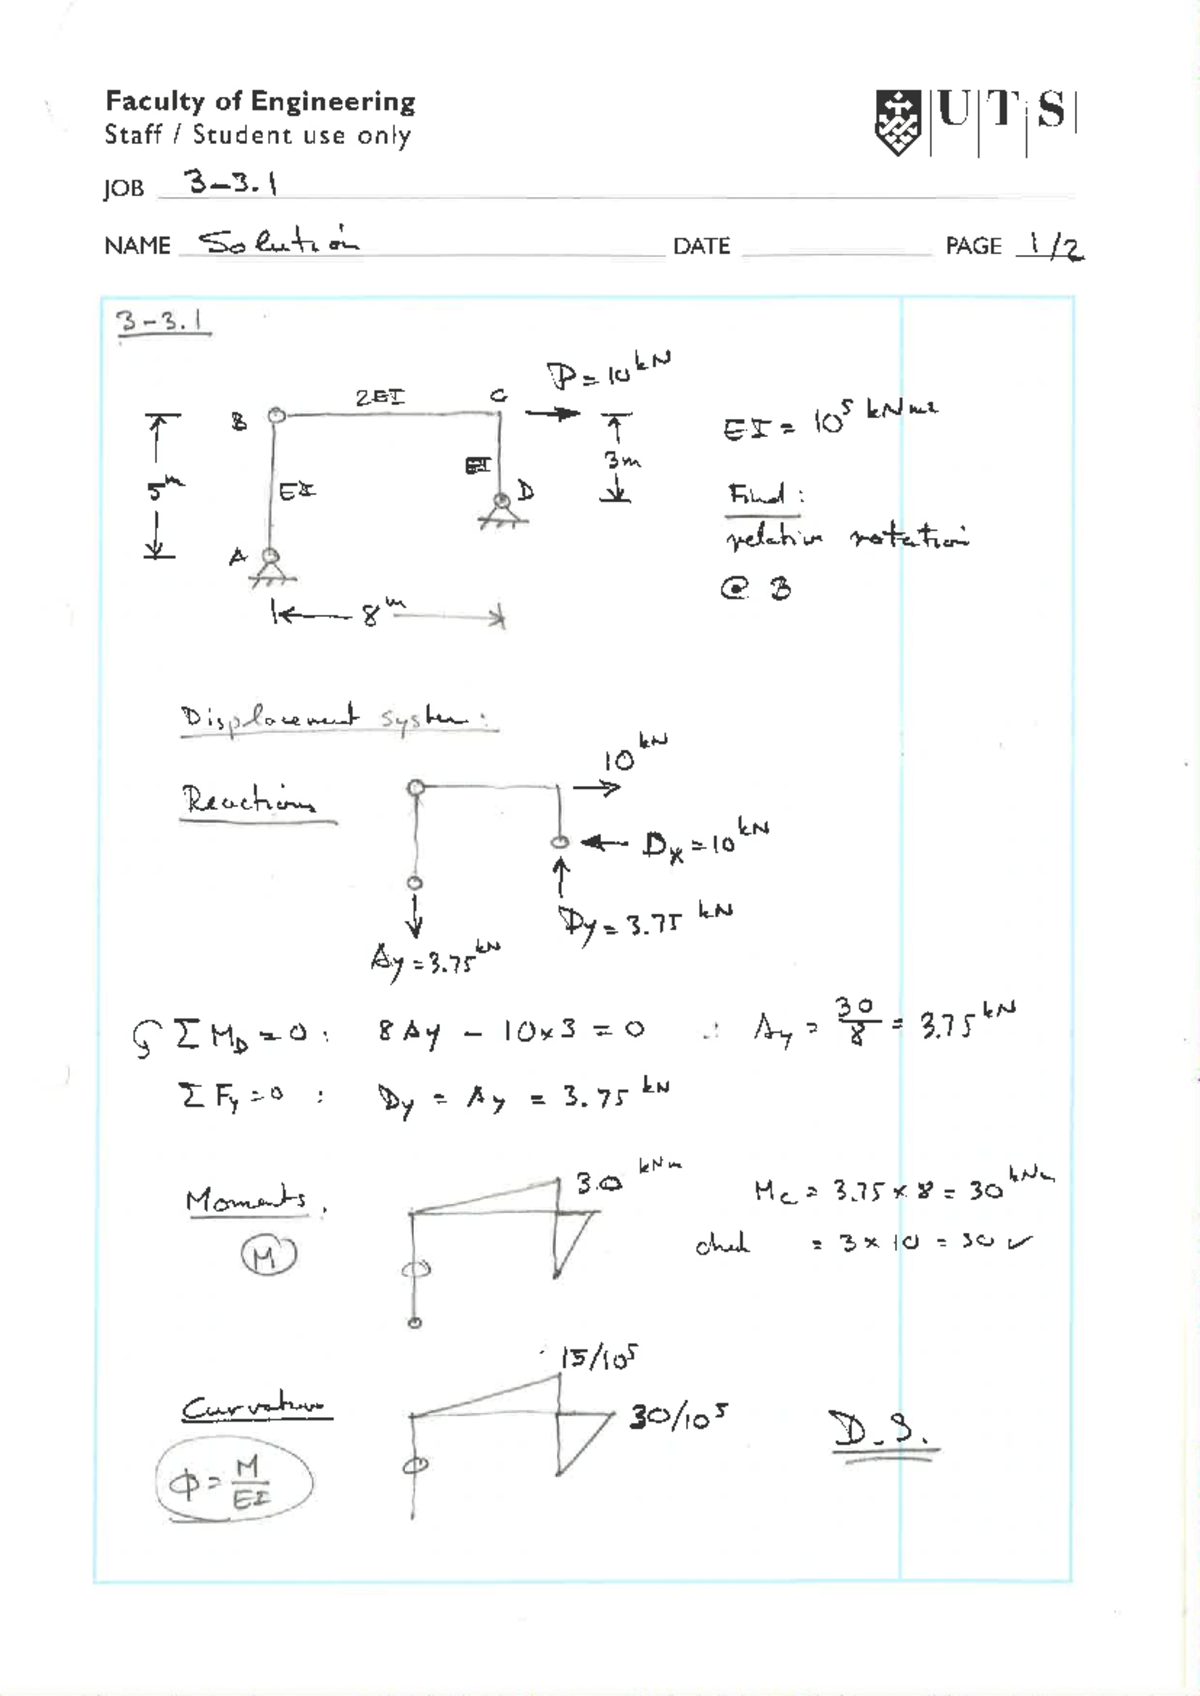 Faculty of Engineering
Staff / Student use only
UTS
JOB 3-3.1
NAME Solution DATE PAGE 1/2
3-3.1
P = 10 kN
B 2EI C
EI = 10⁵ kNm²
5m EI EI D 3m
Find:
relative rotation
@ B
A
8m
Displacement system:
10 kN
Reactions
Dx = 10 kN
Dy = 3.75 kN
Ay = 3.75 kN
ΣM_D = 0 : 8Ay - 10×3 = 0 ∴ Ay = 30/8 = 3.75 kN
ΣFy = 0 : Dy = Ay = 3.75 kN
Moments.
M
30 kNm
Mc = 3.75 × 8 = 30 kNm
check = 3 × 10 = 30 ✓
15/10⁵
Curvature
30/10⁵
D.S.
φ = M/EI